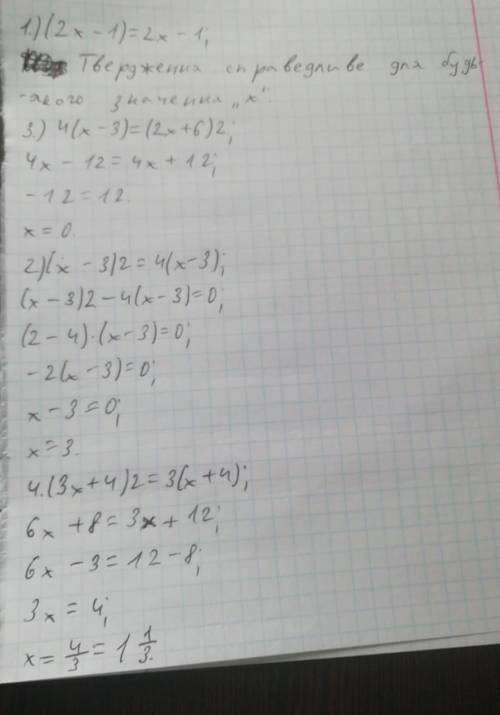 1.) (2x - 1) = 2x - 1;
Твердження справедливе для будь-
-якого значення „x".
3.) 4(x - 3) = (2x + 6)2;
4x - 12 = 4x + 12;
-12 = 12.
x = 0.
2.) (x - 3)2 = 4(x - 3);
(x - 3)2 - 4(x - 3) = 0;
(2 - 4)·(x - 3) = 0;
-2(x - 3) = 0;
x - 3 = 0;
x = 3.
4.(3x + 4)2 = 3(x + 4);
6x + 8 = 3x + 12;
6x - 3 = 12 - 8;
3x = 4;
x = 4/3 = 1 1/3.